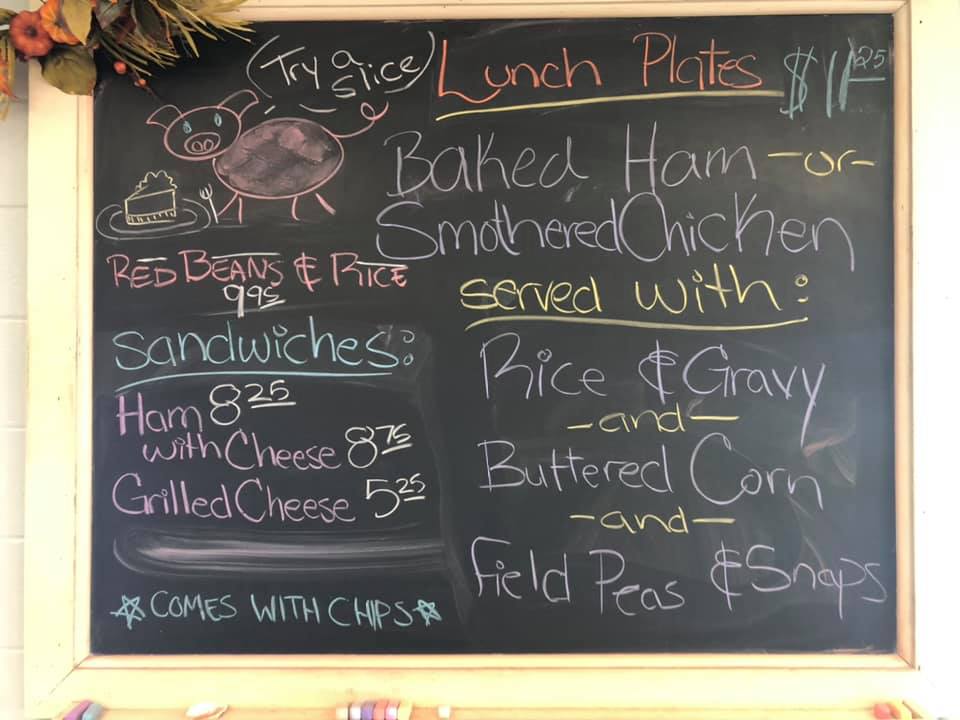 Try a
slice
RED BEANS & RICE
9.95
Sandwiches:
Ham 8.25
with Cheese 8.75
Grilled Cheese 5.25
☆COMES WITH CHIPS☆
Lunch Plates $11.25
Baked Ham -or-
Smothered Chicken
served with:
Rice & Gravy
-and-
Buttered Corn
-and-
Field Peas & Snaps